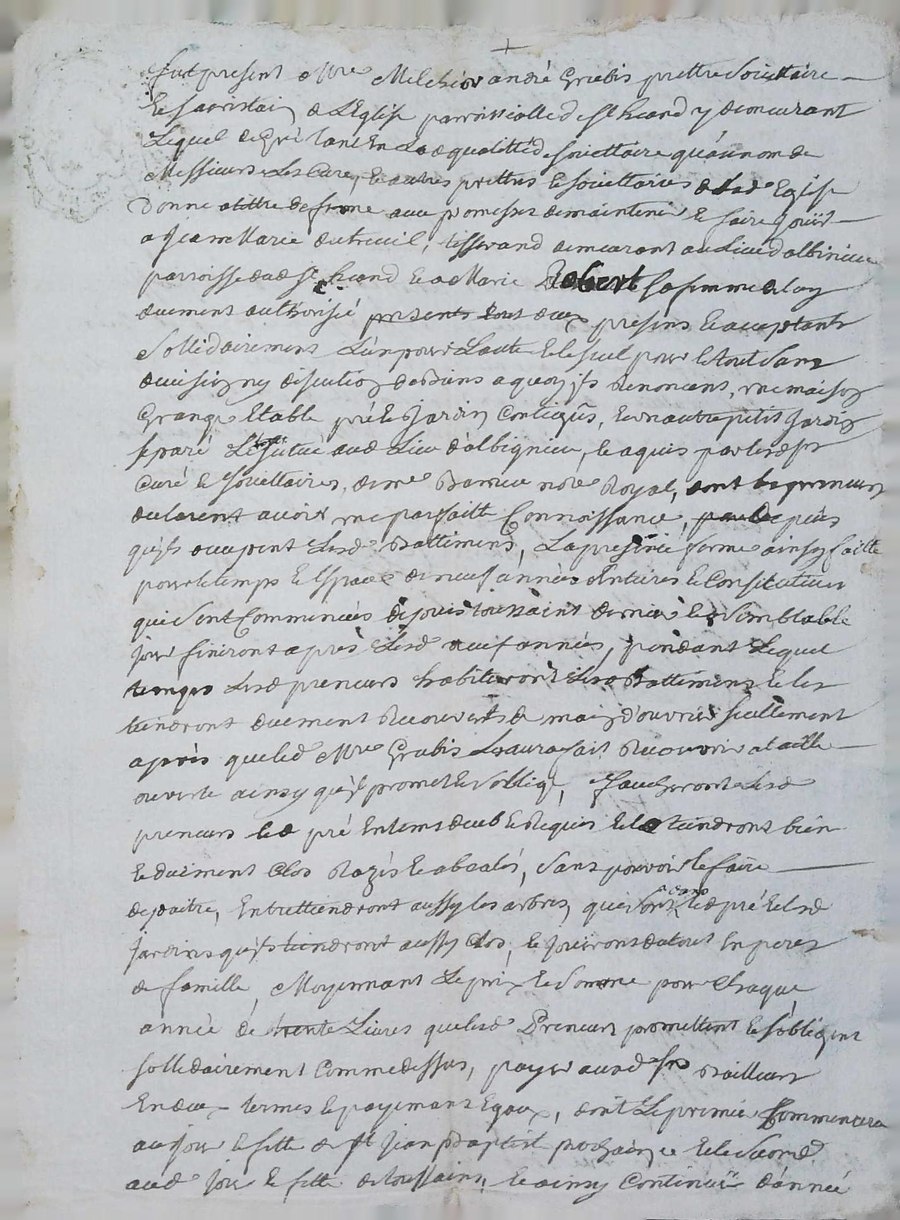 +
fut present Mre Melchior andré Grubis prettre Societtaire
Et Sacristain de L'Eglise parroissialle de st heand y demeurant
Lequel de Gré tant En Lad qualitté de Societtaire qu'au nom de
Messieurs Les Curé, et autres prettres et Societtaires de lad Eglise
Donne a tittre de ferme avec promesse de maintenir Et faire Jouir
a Jean Marie dutreuil, tisserand demeurant au Lieu d'albinieu
parroisse dud st heand Et a Marie Robert sa femme de luy
duement authorisée presents tous deux presens et acceptants
Sollidairement L'un pour L'autre et le seul pour le tout Sans
division ny discution de biens a quoy ils Renoncent, une maison
Grange Etable pré et Jardin contigus, et un autre petit Jardin
separé Le situé aud Lieu d'albignieu, et aquis par lesd srs
Curé et Societtaires, de me nore Royal, dont les preneurs
declarent avoir une parfaitte Connoissance, depuis
qu'ils occupent Lesd Battiments, La presente ferme ainsy faitte
pour le temps et Espace de neuf années Entieres et Consecutives
qui Sont Commencées depuis toussaint dernier et a Semblable
Jour finiront apres Lesd neuf années, pendant Lequel
temps Lesd preneurs habiteront Lesd Battiments et les
tiendront duement Recouverts de main d'ouvrier seullement
apres que led Mre Grubis Les aura fait Recouvrir a taille
ouverte ainsy qu'il promet et s'oblige, faucheront Lesd
preneurs led pré En tems deub et Requis et le tiendront bien
et duement clos Razés et, Sans pouvoir le faire
depaitre, Entrettiendront aussy les arbres, qui sont dans led pré et lesd
Jardins qu'ils tiendront aussy clos, et Jouiront du tout En peres
de famille, Moyennant Le prix et Somme pour Chaque
année de trente Livres que lesd Preneurs promettent et s'obligent
sollidairement Comme dessus, payer auxd srs Bailleurs
En deux termes et payemans Egaux, dont Le premier Commencera
au jour et fette de st Jean Baptist prochain et le Second
aud Jour et fette de toussaint, et ainsy Continuer d'année